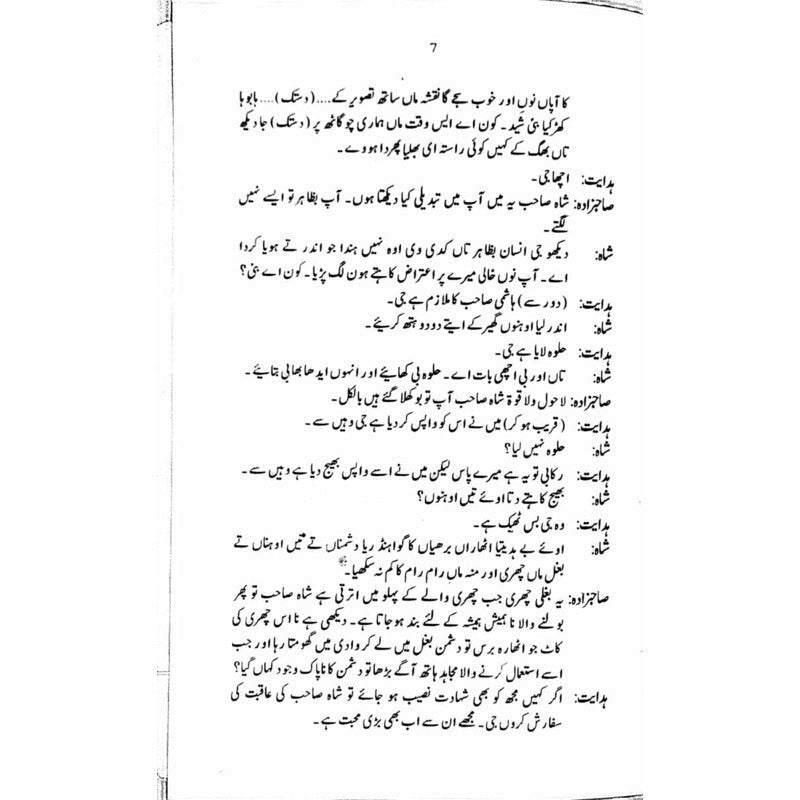 7
کا آپاں نوں اور خوب سجے گا نقشہ ماں ساتھ تصویر کے.... (دستک).... ہابوہا
کھڑکیا بنی شید۔ کون اے ایس وقت ماں ہماری چوگاٹھ پر (دستک) جا دیکھ
تاں بھگ کے کہیں کوئی راستہ ای بھلیا پھردا ہووے۔
ہدایت: اچھا جی۔
صاحبزادہ: شاہ صاحب یہ میں آپ میں تبدیلی کیا دیکھتا ہوں۔ آپ بظاہر تو ایسے نہیں
لگتے۔
شاہ: دیکھو جی انسان بظاہر تاں کدی وی اوہ نہیں ہندا جو اندر تے ہویا کردا
اے۔ آپ نوں خالی میرے پر اعتراض کاہتے ہون لگ پڑیا۔ کون اے بنی؟
ہدایت: (دور سے) ہاشمی صاحب کا ملازم ہے جی۔
شاہ: اندر لیا اوہنوں گھیر کے ایتے دو دو ہتھ کریئے۔
ہدایت: حلوہ لایا ہے جی۔
شاہ: تاں اور بی اچھی بات اے۔ حلوہ بی کھایئے اور انہوں ایدھا بھا بی بتایئے۔
صاحبزادہ: لاحول ولا قوۃ شاہ صاحب آپ تو بوکھلا گئے ہیں بالکل۔
ہدایت: (قریب ہو کر) میں نے اس کو واپس کر دیا ہے جی وہیں سے۔
شاہ: حلوہ نہیں لیا؟
ہدایت: رکابی تو یہ ہے میرے پاس لیکن میں نے اسے واپس بھیج دیا ہے وہیں سے۔
شاہ: بھیج کاہتے دتا اوئے تیں اوہنوں؟
ہدایت: وہ جی بس ٹھیک ہے۔
شاہ: اوئے بے ہدیتیا اٹھاراں برھیاں کا گواہنڈ رہا دشمناں تے تیں اوہناں تے
بغل ماں چھری اور منہ ماں رام رام کا کم نہ سکھیا۔
صاحبزادہ: یہ بغلی چھری جب چھری والے کے پہلو میں اترتی ہے شاہ صاحب تو پھر
بولنے والا ناہمیش ہمیشہ کے لئے بند ہو جاتا ہے۔ دیکھی ہے نا اس چھری کی
کاٹ جو اٹھارہ برس تو دشمن بغل میں لے کر وادی میں گھومتا رہا اور جب
اسے استعمال کرنے والا مجاہد ہاتھ آگے بڑھا تو دشمن کا ناپاک وجود کہاں گیا؟
ہدایت: اگر کہیں مجھ کو بھی شہادت نصیب ہو جائے تو شاہ صاحب کی عاقبت کی
سفارش کروں جی۔ مجھے ان سے اب بھی بڑی محبت ہے۔